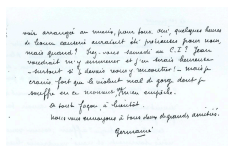 voir arrangé au mieux, pour tous deux, quelques heures
de bonne causerie auraient été précieuses pour nous,
mais quand ? Irez-vous samedi au C.I ? Jean
voudrait m'y emmener et j'en serais heureuse
- surtout si je devais vous y rencontrer ! - mais je
crains fort que le violent mal de gorge dont je
souffre en ce moment m'en empêche.
De toute façon à bientôt.
Nous vous envoyons à tous deux de grandes amitiés.
Germaine